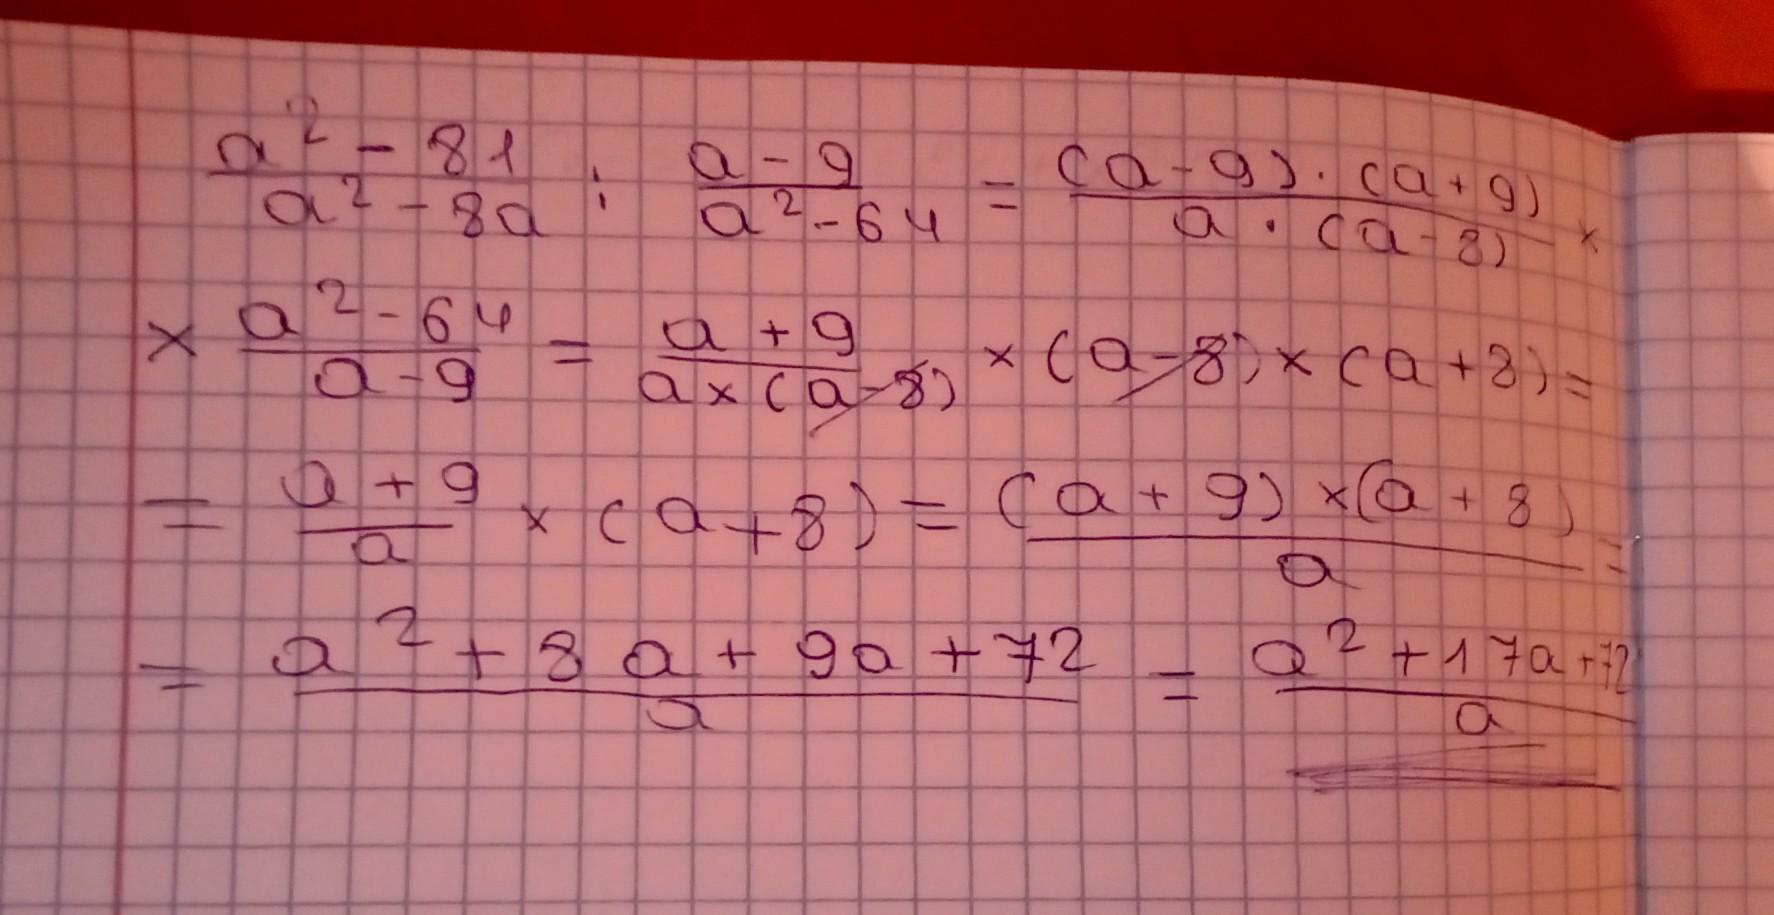 a² - 81 / a² - 8a : a - 9 / a² - 64 = (a - 9) · (a + 9) / a · (a - 8) ×
× a² - 64 / a - 9 = a + 9 / a × (a - 8) × (a - 8) × (a + 8) =
= a + 9 / a × (a + 8) = (a + 9) × (a + 8) / a =
= a² + 8a + 9a + 72 / a = a² + 17a + 72 / a